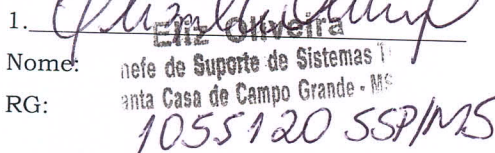 1.
Eliz Oliveira
Nome: hefe de Suporte de Sistemas T
RG: anta Casa de Campo Grande - MS
1055120 SSP/MS